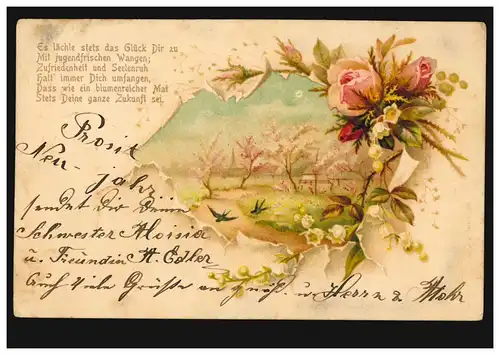 Es lächle stets das Glück Dir zu
Mit jugendfrischen Wangen;
Zufriedenheit und Seelenruh
Halt' immer Dich umfangen,
Dass wie ein blumenreicher Mai
Stets Deine ganze Zukunft sei.
Prosit
Neu-
jahr
sendet Dir Deine
Schwester Aloisia
u. Freundin A. Edler
Auch viele Grüße an u. Herrn